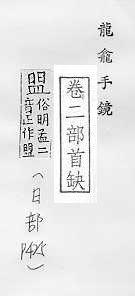 龍龕手鏡
卷二部首缺
盟俗明孟二
音正作盟
(日部
P425)